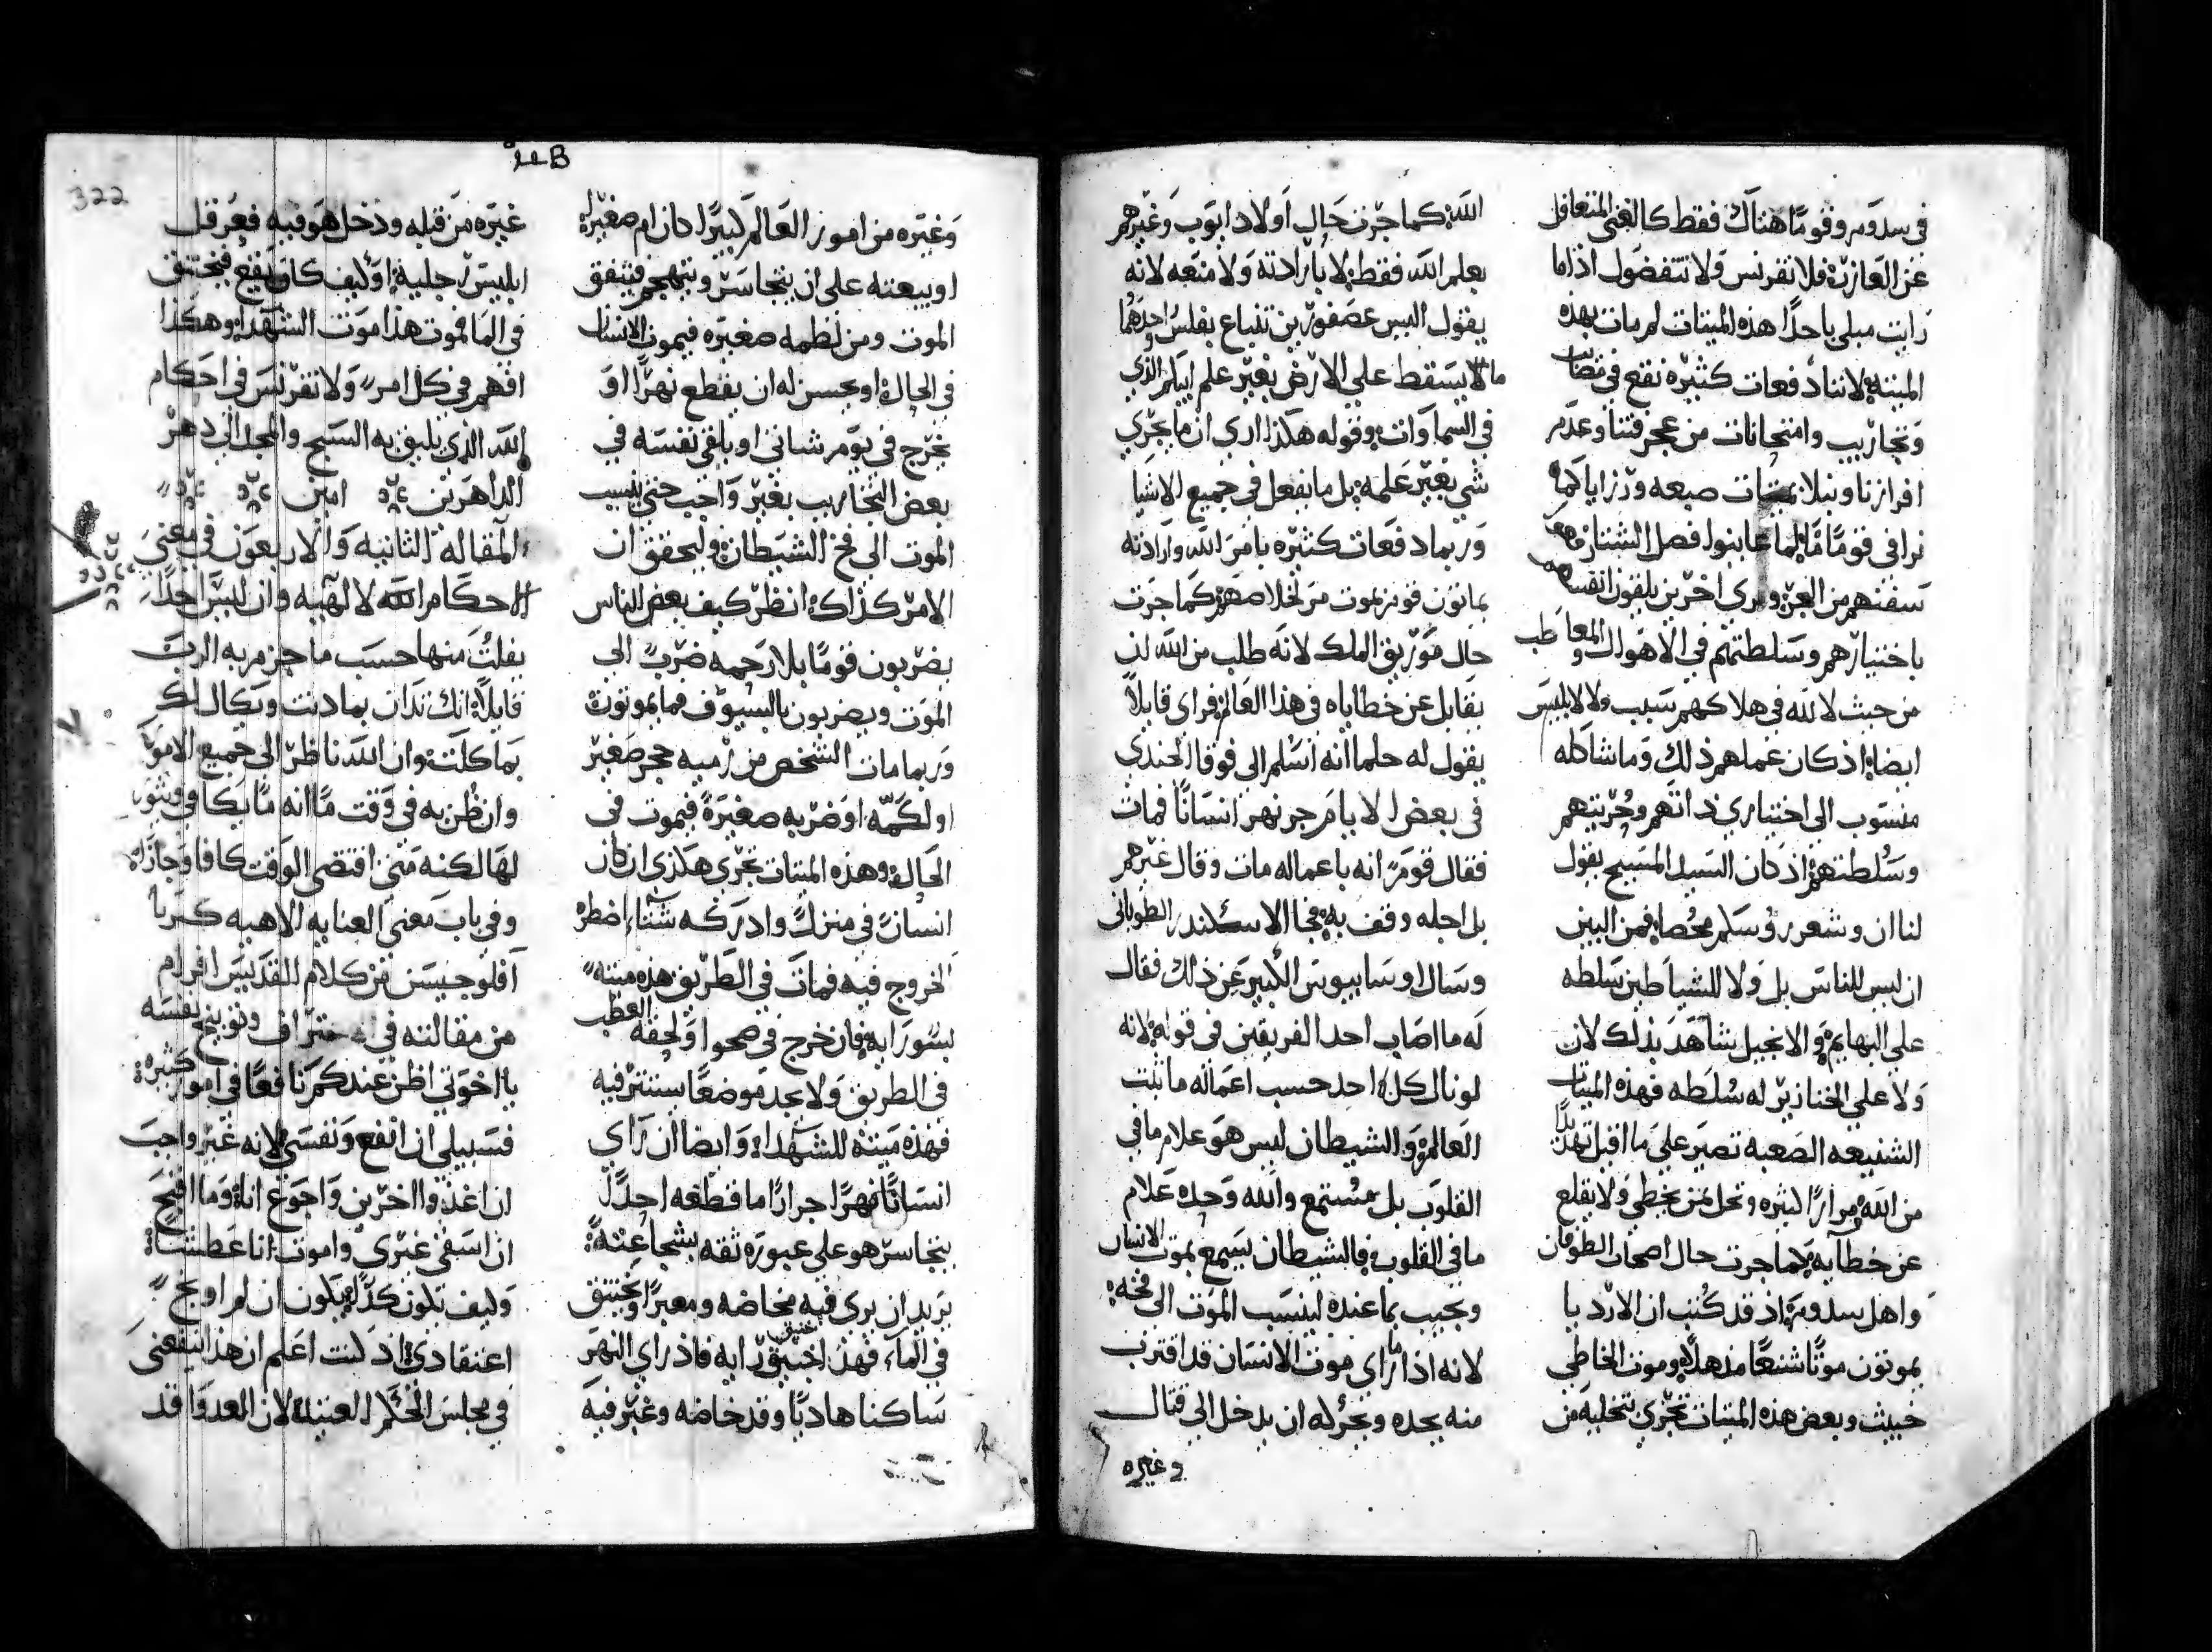 في سدوم وقومًا هناك فقط كالغني المتغافل
عن العازر؛ فلا تفرنس ولا تتفضول اذا ما
رايت مبلي باحدًا هذه الميتات لم مات بهذه
الميتة؛ لاننا دفعات كثيره نقع في مضات
وتجاريب وامتحانات من عجرفتنا وعدم
افرازنا ونبلا بميتات صعبه ورزايا كما
نرا في قومًا مًا لما عاينوا فصل الشتا
سفنهم من البحر ونري اخرين يلقون انفسهم
باختيارهم وسلطتهم في الاهوال والمعاطب
من حيث لا لله في هلاكهم سبب ولا لابليس
ايضا؛ اذ كان عملهم ذلك وما شاكله
منسوب الى اختياري ذاتهم وحريتهم
وسلطتهم اذ كان السيد المسيح يقول
لنا ان وشعر روسكم محصا؛ فمن البين
ان ليس للناس بل ولا للشياطين سلطه
علي البهايم؛ والانجيل شاهد بذلك لان
ولا علي الخنازير له سلطه فهذه الميتات
الشنيعه الصعبه تصير علي ما اقبل تهددًا
من الله مرارًا كثيره وتحل بمن يخطي ولا يقلع
عن خطايه كما جرت حال اصحاب الطوفان
واهل سدوم؛ اذ قد كتب ان الارديا
يموتون موتًا شنعًا مذهلًا؛ وموت الخاطي
خبيث وبعض هذه الميتات تجري بتخليه من
الله؛ كما جرت حال اولاد ايوب وغيرهم
بعلم الله فقط؛ لا بارادته ولا منعه لانه
يقول اليس عصفورين تنباع بفلس واحدهما
ما لا يسقط علي الارض بغير علم ابيكم الذي
في السماوات؛ وقوله هكذا اري ان ما يجري
شي بغير علمه؛ بل ما يفعل في جميع الاشيا
وربما دفعات كثيره بامر الله وارادته
يماتون قوم بموت من لخلاصهم كما جرت
حال موريق الملك لانه طلب من الله ان
يقابل عن خطاياه في هذا العالم؛ فراي قايلًا
يقول له حلما انه اسلم الى فوقا الجندي
في بعض الايام جر نهر انسانًا فمات
فقال قوم انه باعماله مات وقال غيرهم
بل اجله وقف به؛ فجا الاسكندر الطوباني
وسال اوسابيوس الكبير عن ذلك فقال
له ما اصاب احد الفريقين في قوله؛ لانه
لو نال كل احد حسب اعماله ما ثبت
العالم؛ والشيطان ليس هو علام ما في
القلوب بل مستمع والله وحده علام
ما في القلوب؛ فالشيطان يسمع بموت الانسان
ويجيب بما عنده لينسب الموت الى فخه؛
لانه اذا ما راي موت الانسان قد اقترب
منه يحده ويجرئه ان يدخل الى قتال
وغيره
322
وغيره من امور العالم كبيرًا كان ام صغيرًا
او يبعته على ان يتجاسر ويتهجم فيتفق
الموت ومن لطمه صغيره فيموت الانسان
في الحال؛ او يحسن له ان يقطع نهرًا او
يخرج في يوم شاتي او يلقي نفسه في
بعض التجاريب بغير واجب حتي ينسب
الموت الى فخ الشيطان؛ وليحقق ان
الامر كذاك؛ انظر كيف بعض الناس
يضربون قومًا بلا رحمه ضربً الي
الموت ويضربون بالسيوف فما يموتون؛
وربما مات الشخص من رميه حجر صغير
او لكمّه او ضربه صغيرة فيموت في
الحال؛ وهذه الميتات تجري هكذي ان كان
انسانً في منزلً وادركه شتاء اضطره
الخروج فيه فمات في الطريق هذه ميتة
بسو رايه؛ فان خرج في صحوا ولحقه العطب
في الطريق ولا يجد موضعًا يستتر فيه
فهذه ميتة للشهدا؛ وايضا ان راي
انسانًا نهرًا جرارًا ما قطعه احدًا
يتجاسر هو علي عبوره ثقه بشجاعته؛
يريد ان يري فيه مخاضه ومعبرًا ويختنق
في الماء فهذا اختنق برايه فاذ راي النهر
ساكنا هاديًا وقد خاضه وغبر فيه
غيره من قبله ودخل هو فيه فعرقل
ابليس رجليه اوكيف كان يقع فيختنق
في الما فموت هذا موت الشهدا؛ وهكذا
افهم في كل امر ولا تفرنس في احكام
الله الذي يليق به السبح والمجد الى دهر
الداهرين امين
المقاله الثانيه والاربعون في معني
احكام الله الالهيه وان ليس احدًا
يفلت منها حسب ما جزم به الرب
قايلًا؛ انك تدان بما دنت ويكال لك
بما كلت؛ وان الله ناظر الى جميع الامور
وان ظن به في وقت مًا انه ما يكافي
لها لكنه متي اقتضي الوقت كافا وجازا؛
وفي باب معني العنايه الالاهيه كيريا
افلوجيسن من كلام للقديس افرام
من مقالته في اعتراف وتوبيخ نفسه
يا اخوتي اظن عندكم نافعًا في امور كثيره؛
فسبيلي ان انفع ونفسي؛ لانه غير واجب
ان اغذوا اخرين واجوع انا؛ وما اقبح
ان اسقي غيري واموت انا عطشا؛
وكيف يكون كذا؛ يكون ان لم اوبخ
اعتقادي؛ اذ لست اعلم ان هذا لينفعني
في مجلس الحكم العتيد؛ لان المعد وافد